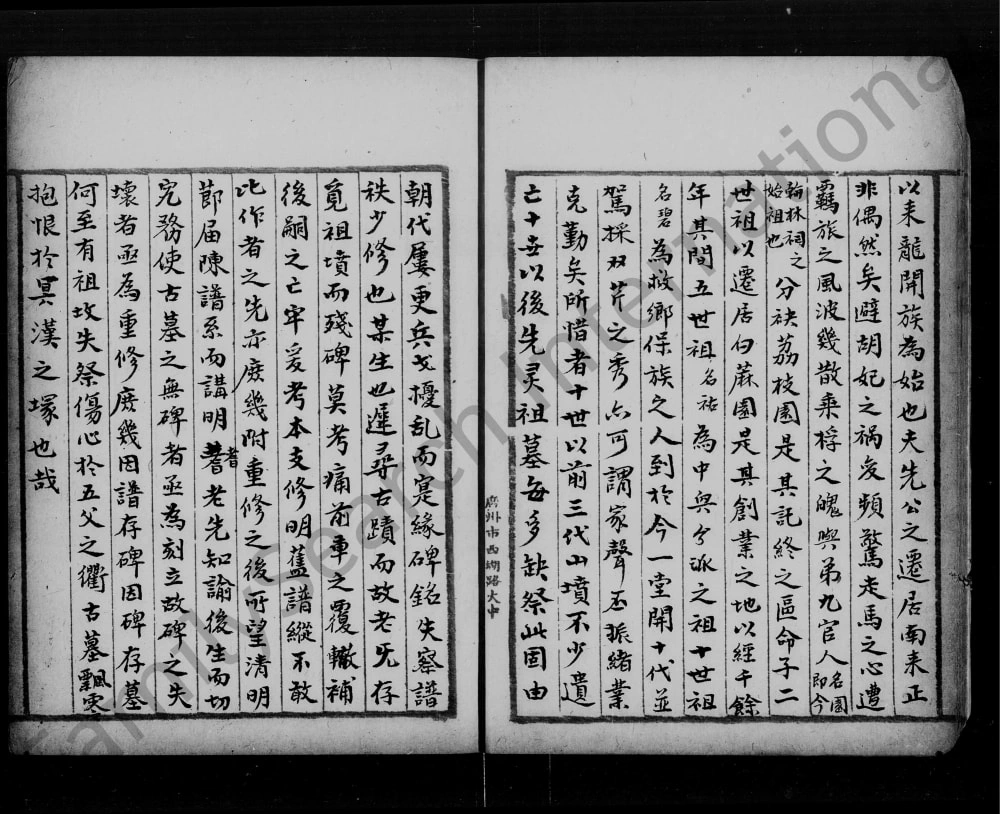 以来龍開族為始也夫先公之遷居南来正
非偶然矣避胡妃之禍爰頻驚走馬之心遭
羈旅之風波幾散乘桴之魄與弟九官人名園即今
翰林祠之始祖也分袂荔枝園是其託終之區命子二
世祖以遷居白蔴園是其創業之地以經千餘
年其間五世祖名祐為中興分派之祖十世祖
名碧為救鄉保族之人到於今一堂開十代並
駕採双芹之秀亦可謂家聲丕振緒業
克勤矣所惜者十世以前三代山墳不少遺
亡十世以後先灵祖墓每多缺祭此固由
廣州市西湖路大中
朝代屢更兵戈擾乱而寔緣碑銘失察譜
秩少修也某生也遲尋古蹟而故老旡存
覓祖墳而殘碑莫考痛前車之覆轍補
後嗣之亡牢爰考本支修明舊譜縱不敢
比作者之先亦庶幾附重修之後所望清明
節届陳譜系而講明耆老先知諭後生而切
究務使古墓之無碑者亟為刻立故碑之失
壞者亟為重修庶幾因譜存碑因碑存墓
何至有祖坟失祭傷心於五父之衢古墓飄零
抱恨於冥漠之塚也哉
FamilySearch International